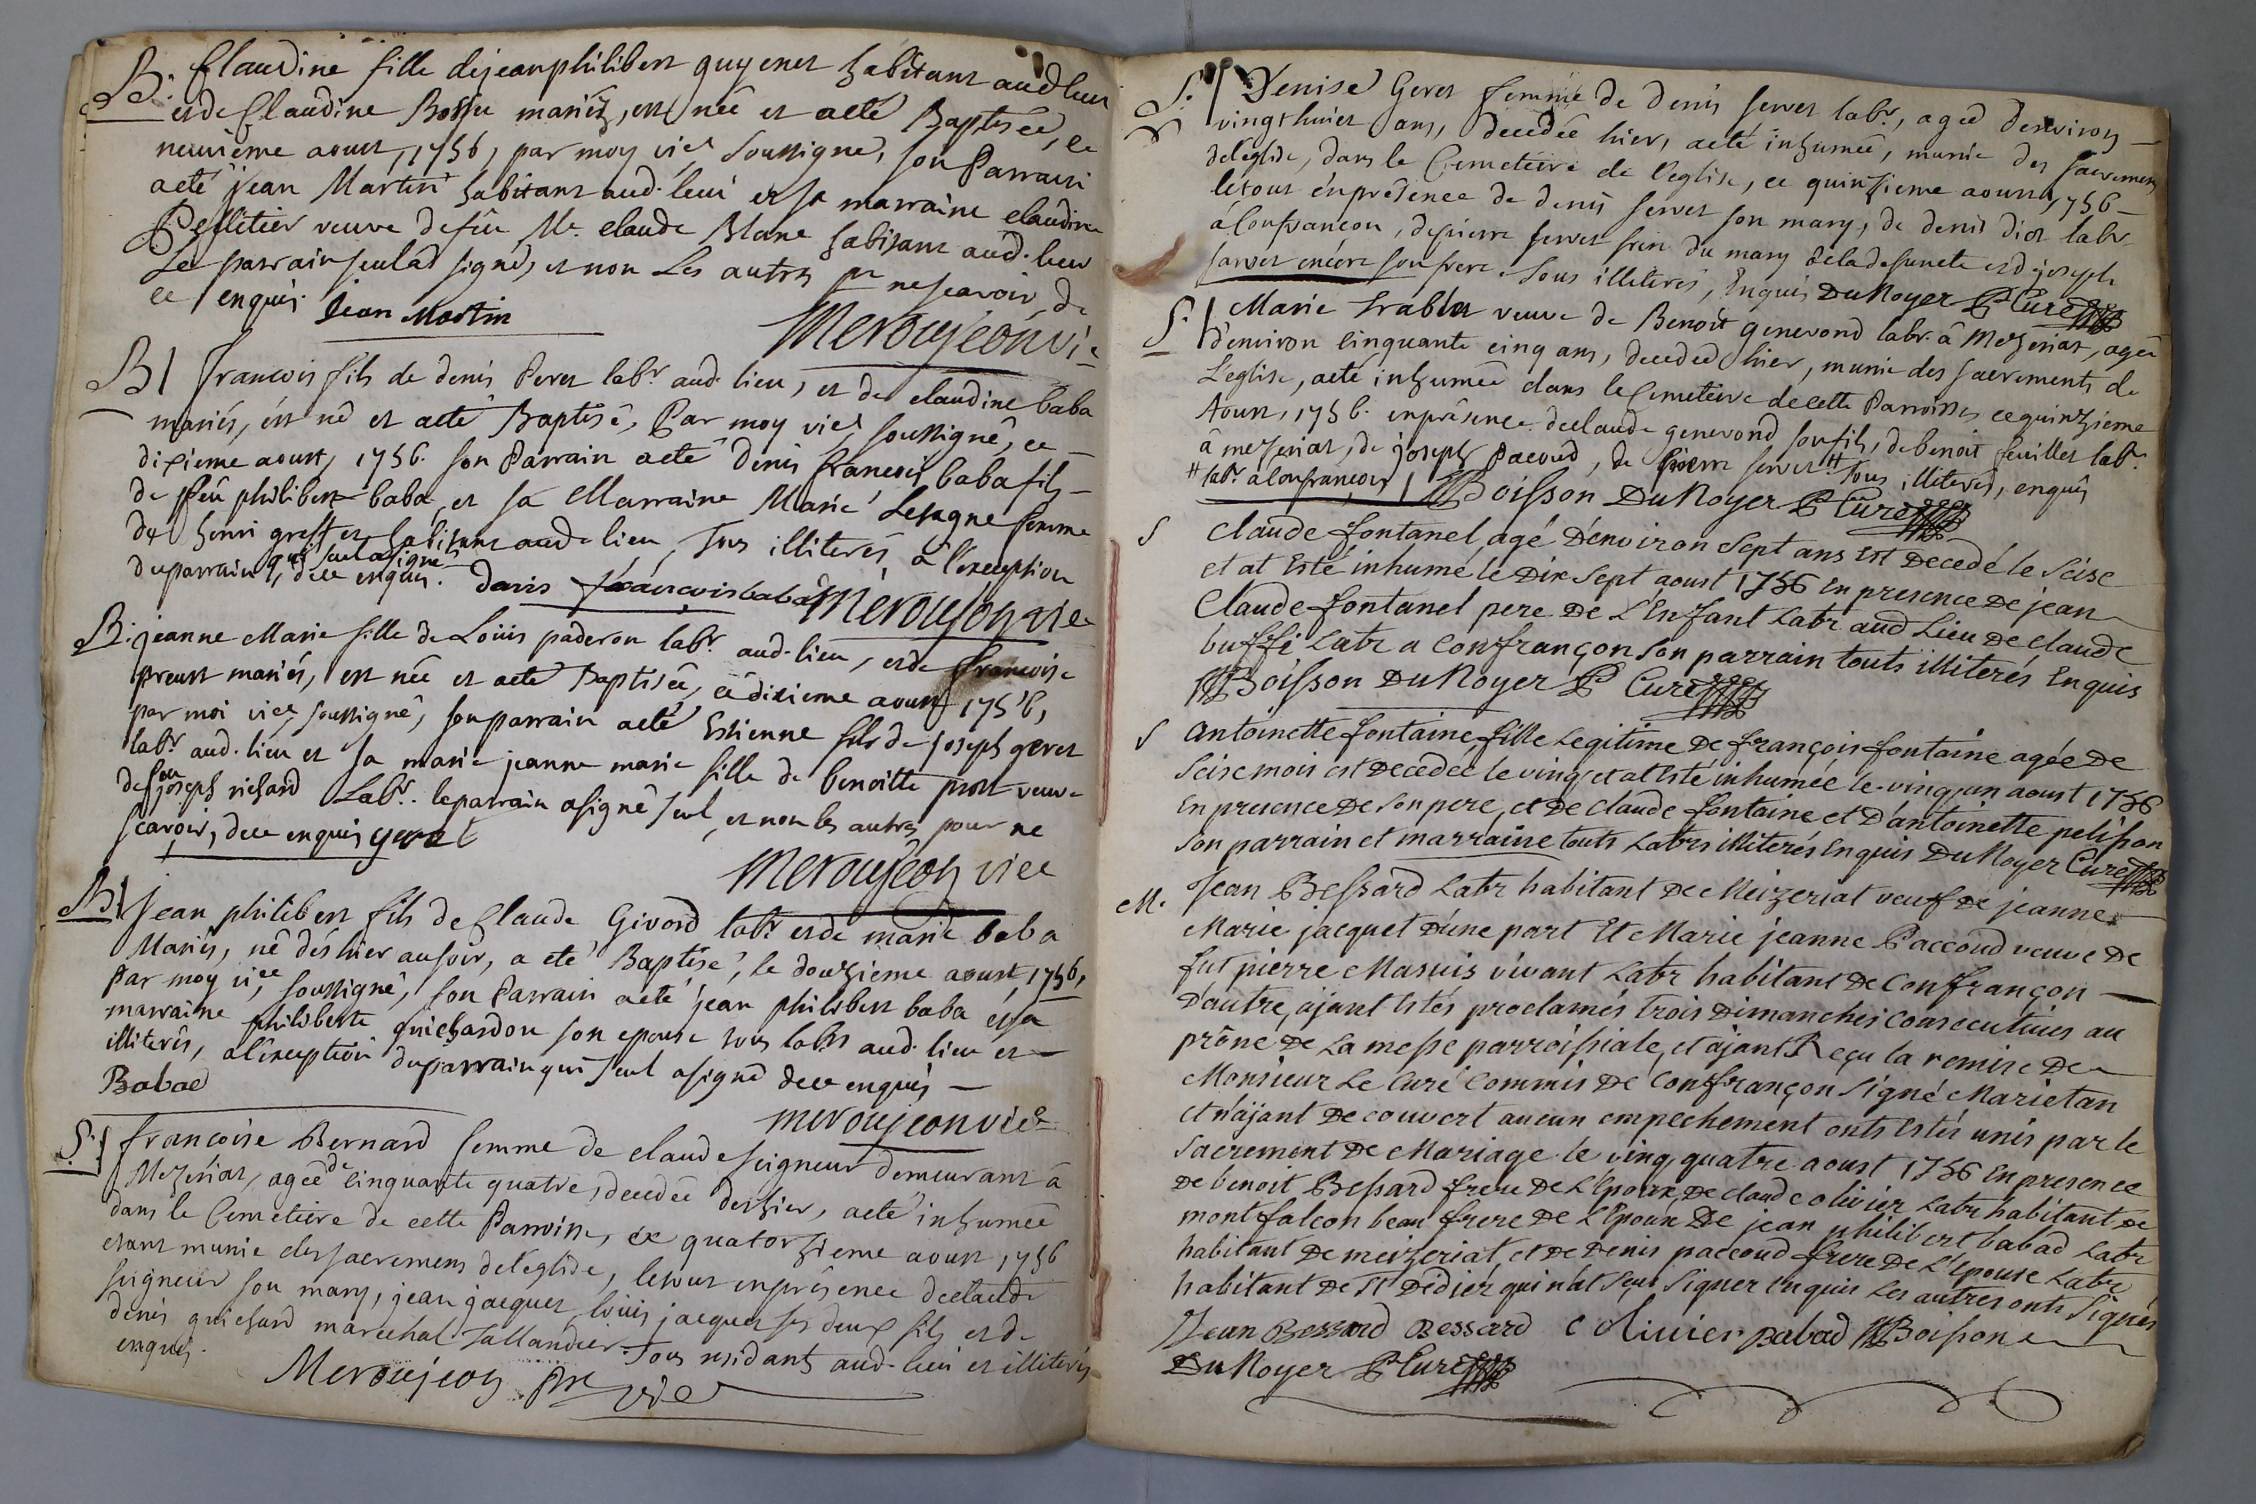 B. Claudine fille dejeanphilibert guyenet habitant audlieu
etde Claudine Bossu mariéz, est née et aeté Baptisée, le
neuvieme aoust, 1756, par moy vic.e soussigné, son Parrain
aeté jean Martin habitant aud. lieu et sa marraine claudine
Pelletier veuve defûe Me. claude Blanc habitant aud. lieu
Le parrain seulad signé, et non Les autres pr nescavoir, de
ce / enquis. Jean Martin
Meroujeon vi.e
B françois fils de denis Peret labr. aud. lieu, et de claudine baba
mariés, est né et aeté Baptisé, Par moy vice soussigné, ce
dixieme aoust, 1756. son Parrain aeté denis françois baba fils
de feu philibert baba, et sa Marraine Marie Lesagne femme
de henri habitant aud. lieu, Tous illiterés, à l'exception
duparrain qui seul asigné, dece enquis. danis françois baba
Meroujeon vice
B. jeanne Marie fille de Loüis paderon labr. aud. lieu, etde francoise
preust mariés, est née et aeté Baptisée, ce dixieme aoust 1756,
par moi vice soussigné, son parrain aeté Estienne fils de joseph geret
labr. aud. lieu et sa marie jeanne marie fille de benoitte prost veuve
defeu joseph richard Labr. leparrain asigné seul, et non les autres pour ne
scavoir, dece enquis geret
Meroujeon vice
B jean philibert fils de Claude Givord labr. etde marie baba
Mariés, né dés hier ausoir, a eté Baptisé, le douzieme aoust, 1756,
Par moy vi,ce soussigné, son Parrain aeté jean philibert baba et sa
marraine philiberte guichardon son epouse tous labrs aud. lieu et
illiterés, alexception duparrain qui seul asigné dece enquis —
Babad
meroujeon vice
S. francoise Bernard femme de claude seigneur demeurant à
Mezériat, agée de cinquante quatre, decedée derhier, aeté inhumée
dans le Cemetiere de cette Parroisse, ce quatorzieme aoust, 1756
etant munie des sacremens del'eglise, letout enprésence declaude
seigneur son mary, jean jacquet, loüis jacquet ses deux fils et de
denis guichard marechal Taillandier. Tous residants aud. lieu et illiterés
enquis.
Meroujeon ptre vice
S. Denise Geret femme de denis servet labr., agée denviron
vingt huict ans, decedée hier, aeté inhumée, munie des sacremens
del'eglise, dans le Cemetiere de l'eglise, ce quinzieme aoust, 1756
letout énprésence de denis servet son mary, de denis diot labr.
àConfrançon, depierre servet frere du mary deladefuncte et dejoseph
servet encore son frere. Tous illiterés, Enquis DuNoyer P Curé
S. Marie veuve de Benoit genevond labr. à Mezériat, agée
d'environ cinquante cinq ans, decedée hier, munie des sacrements de
L'eglise, aeté inhumée dans leCemetiere decette Parroisse cequinzieme
Aoust, 1756. enprésence declaude genevond son fils, debenoit feuillet labr.
à mezeriat, de joseph Pacoud, de pierre servet # Tous illiterés, enquis
# labr. àConfrançon / Boisson DuNoyer P Curé
S Claude fontanel, agé D'environ Sept ans Est Decedé le Seise
et at Esté inhumé le Dix Sept aoust 1756 En presence De jean
Claude fontanel pere De L'Enfant Labr aud Lieu De Claude
buffi Labr a Confrançon Son parrain touts illiterés Enquis
Boisson DuNoyer P Curé
S Antoinette fontaine, fille Legitime De françois fontaine agée De
Seise mois est Decedée le vingt et at Esté inhumée le vingtun aoust 1756
En presence De Son pere, et De Claude fontaine et D'antoinette pelisson
Son parrain et marraine touts Labrs illiterés Enquis DuNoyer Curé
M. Jean Bessard Labr habitant De Meizeriat veuf De jeanne
Marie jacquet D'une part Et Marie jeanne Paccoud veuve De
fut pierre Masuis vivant Labr habitant De Confrançon —
D'autre, ajant Estés proclamés trois Dimanches Consecutives au
prône De La messe parroissiale, et ajant Reçu la remise De
Monsieur Le Curé Commis De Confrançon Signé Marietan
et n'ajant De couvert aucun empechement onts Estés unis par le
Sacrement De Mariage le vingt quatre aoust 1756 En presence
De benoit Bessard frere De L'Epoux, De claude olivier Labr habitant De
montfalcon beau frere De L'Epoux De jean philibert babad Labr
habitant De meizeriat, et De Denis paccoud frere De L'Epouse Labr
habitant De St Didier, qui n'at Seut Signer Enquis Les autres onts Signés
Jean Bessard Bessard C olivier Babad Boisson
DuNoyer P Curé